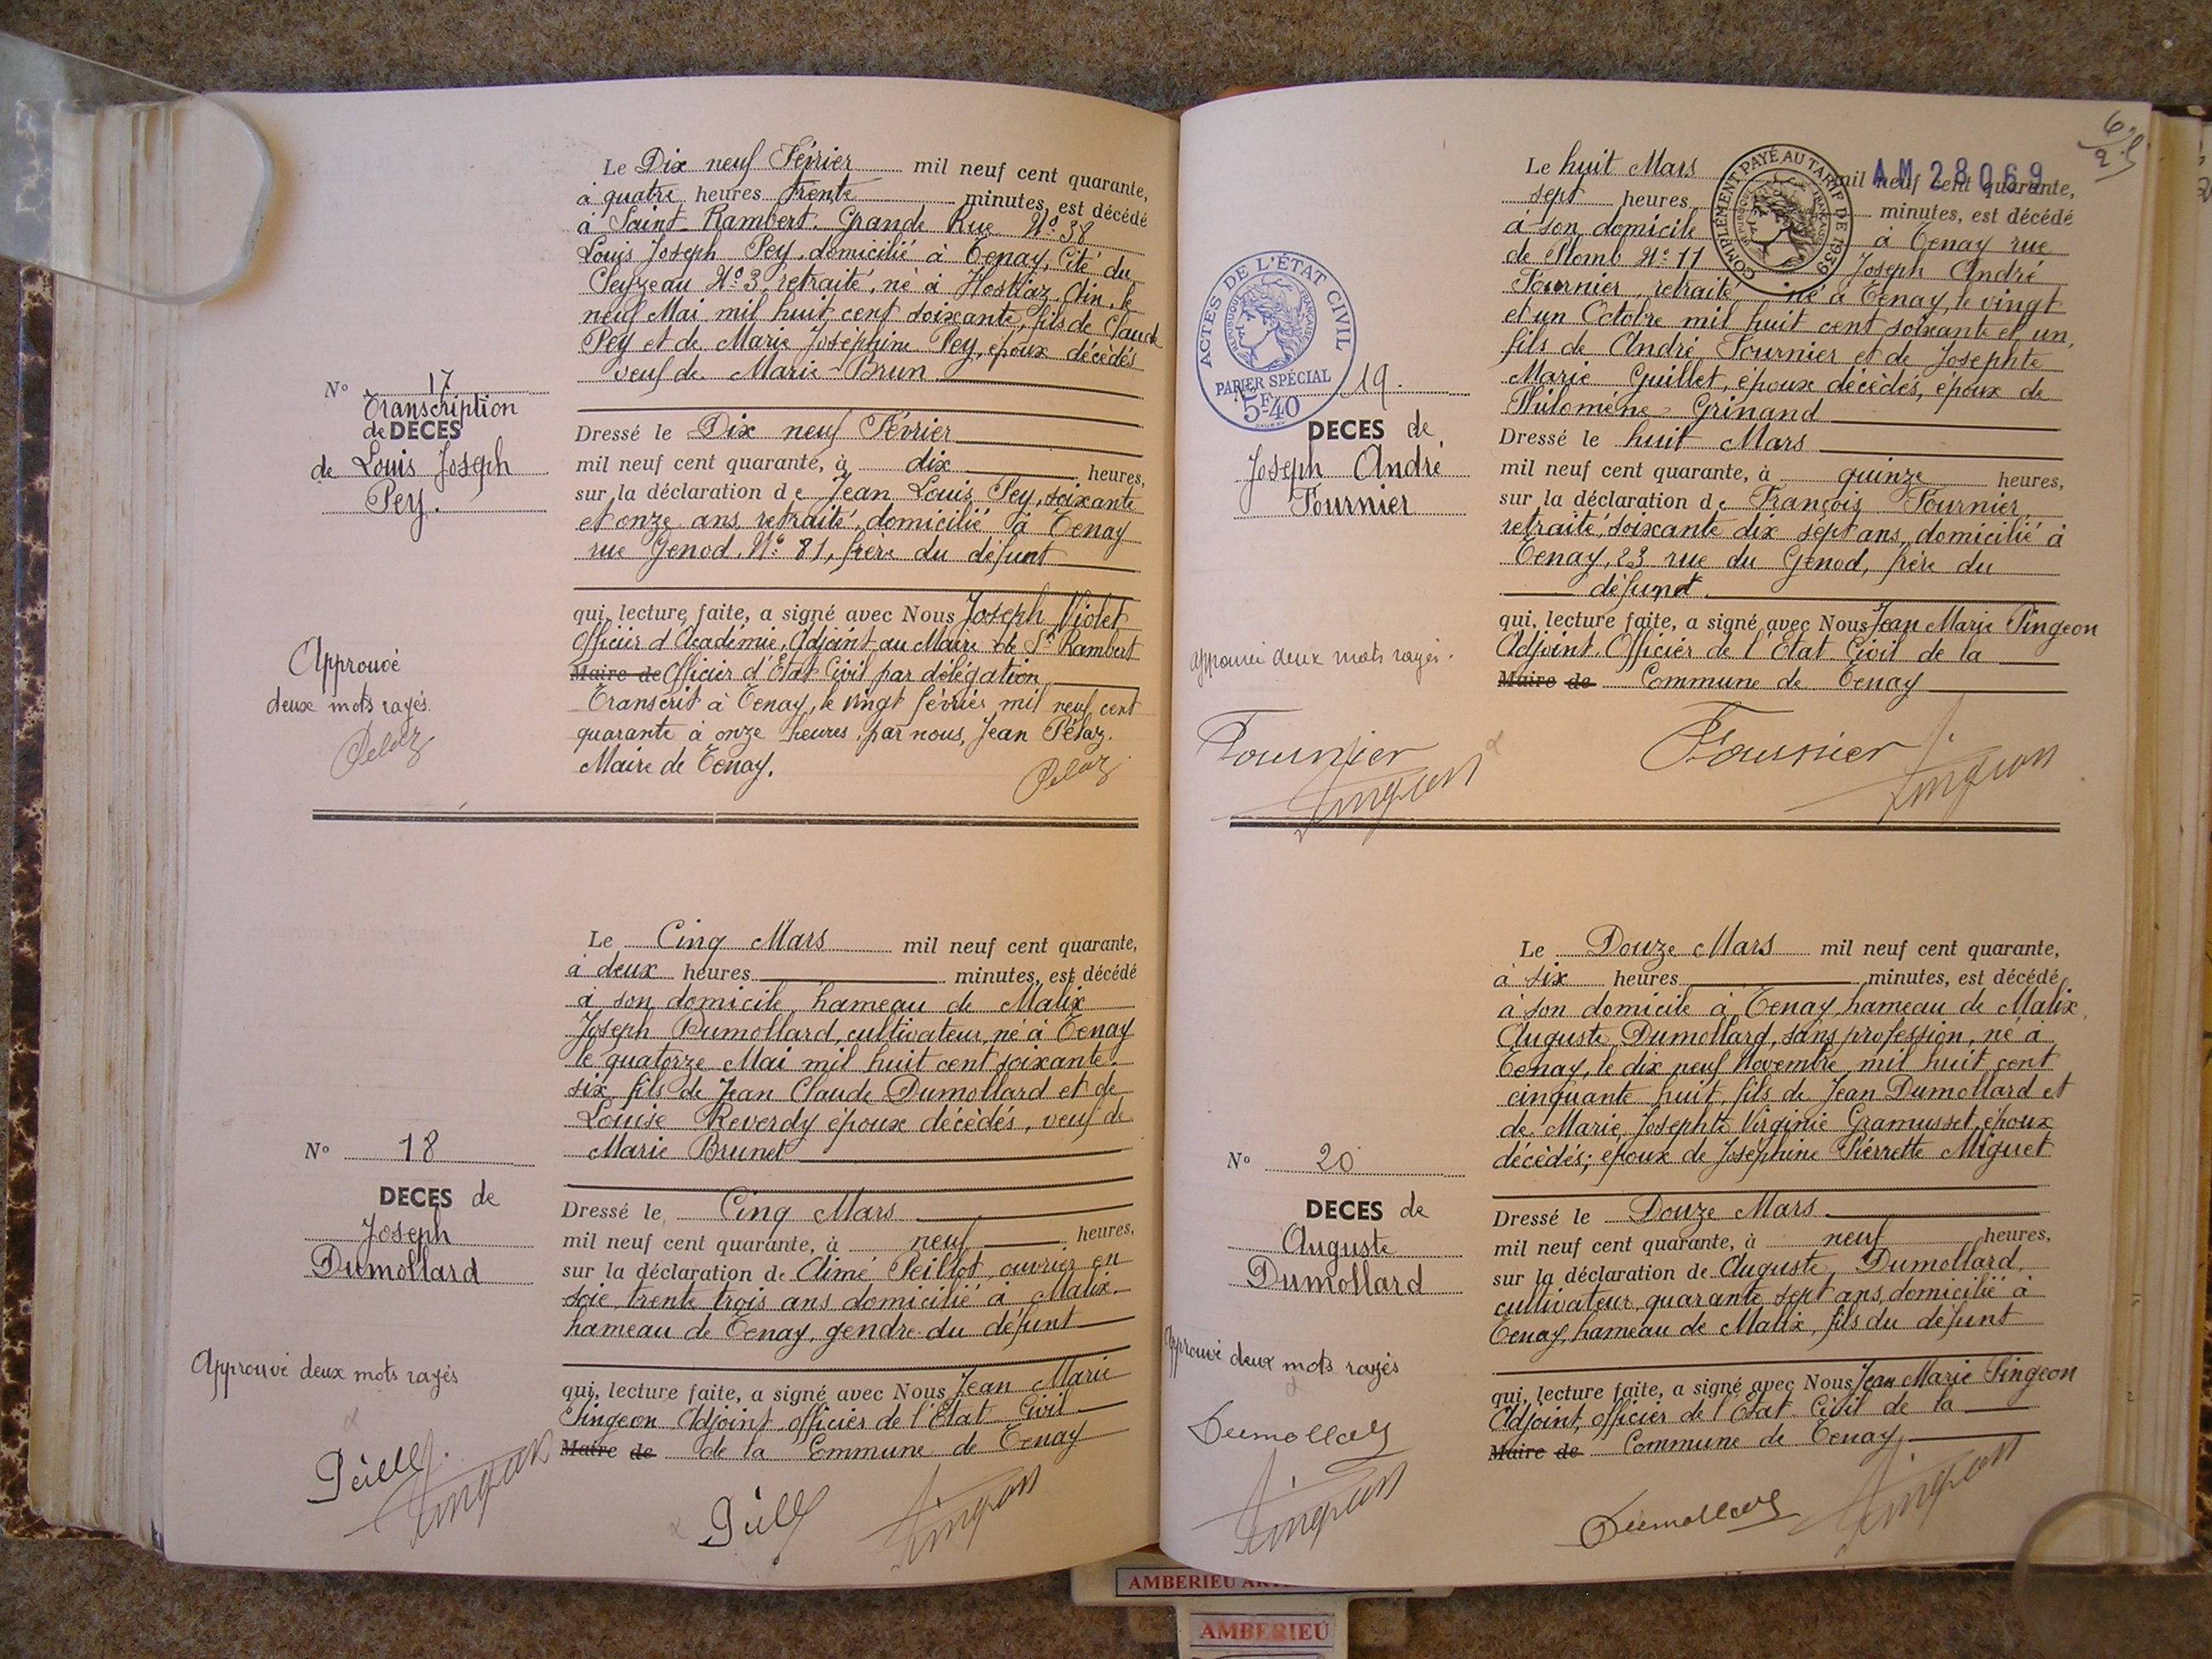 Le Dix neuf Février mil neuf cent quarante,
à quatre heures trente minutes, est décédé
à Saint-Rambert. Grande Rue N° 38
Louis Joseph Pey, domicilié à Tenay, Cité du
N° 3, retraité, né à Hostiaz, Ain, le
neuf Mai mil huit cent soixante, fils de Claude
Pey et de Marie Joséphine Pey, époux décédés
veuf de Marie Brun.
N° 17
Transcription
de DECES
de Louis Joseph
Pey.
Dressé le Dix neuf Février
mil neuf cent quarante, à dix heures,
sur la déclaration de Jean Louis Pey, soixante
et onze ans, retraité, domicilié à Tenay
rue Genod. N° 81, frère du défunt
qui, lecture faite, a signé avec Nous Joseph Violet
Officier d'Académie, Adjoint au Maire de St Rambert
Maire de Officier d'Etat Civil par délégation
Transcrit à Tenay, le vingt février mil neuf cent
quarante à onze heures, par nous, Jean Pélaz.
Maire de Tenay.
Approuvé
deux mots rayés.
Pelaz
Pelaz
Le Cinq Mars mil neuf cent quarante,
à deux heures minutes, est décédé
à son domicile hameau de Malix
Joseph Dumollard, cultivateur, né à Tenay
le quatorze Mai mil huit cent soixante-
six, fils de Jean Claude Dumollard et de
Louise Reverdy époux décédés, veuf de
Marie Brunet
N° 18
DECES de
Joseph
Dumollard
Dressé le Cinq Mars
mil neuf cent quarante, à neuf heures,
sur la déclaration de Aimé Peillot, ouvrier en
soie, trente trois ans domicilié à Malix,
hameau de Tenay, gendre du défunt
qui, lecture faite, a signé avec Nous Jean Marie
Pingeon Adjoint, officier de l'Etat Civil
Maire de de la Commune de Tenay
Approuvé deux mots rayés
Pingeon
Pingeon
6
2
AM 28069
COMPLÉMENT PAYÉ AU TARIF DE 1939
Le huit Mars mil neuf cent quarante,
sept heures minutes, est décédé
à son domicile à Tenay rue
de Plomb N° 11 Joseph André
Fournier, retraité, né à Tenay, le vingt
et un Octobre mil huit cent soixante et un,
fils de André Fournier et de Josephte
Marie Guillet, époux décédés, époux de
Philomène Grinand
ACTES DE L'ÉTAT CIVIL
RÉPUBLIQUE FRANÇAISE
PAPIER SPÉCIAL
5F.40
19.
DECES de
Joseph André
Fournier
Dressé le huit Mars
mil neuf cent quarante, à quinze heures,
sur la déclaration de François Fournier,
retraité, soixante dix sept ans, domicilié à
Tenay, 23 rue du Genod, frère du
défunt.
qui, lecture faite, a signé avec Nous Jean Marie Pingeon
Adjoint. Officier de l'Etat Civil de la
Maire de Commune de Tenay
approuvé deux mots rayés.
Fournier
Pingeon
Fournier
Pingeon
Le Douze Mars mil neuf cent quarante,
à six heures minutes, est décédé
à son domicile à Tenay hameau de Malix,
Auguste Dumollard, sans profession, né à
Tenay, le dix neuf Novembre mil huit cent
cinquante huit, fils de Jean Dumollard et
de Marie Josephte Virginie Gramusset, époux
décédés; époux de Joséphine Pierrette Miguet
N° 20
DECES de
Auguste
Dumollard
Dressé le Douze Mars
mil neuf cent quarante, à neuf heures,
sur la déclaration de Auguste Dumollard,
cultivateur, quarante sept ans, domicilié à
Tenay, hameau de Malix, fils du défunt
qui, lecture faite, a signé avec Nous Jean Marie Pingeon
Adjoint, officier de l'Etat Civil de la
Maire de Commune de Tenay
Approuvé deux mots rayés
Dumollard
Pingeon
Dumollard
Pingeon
AMBERIEU
AMBERIEU